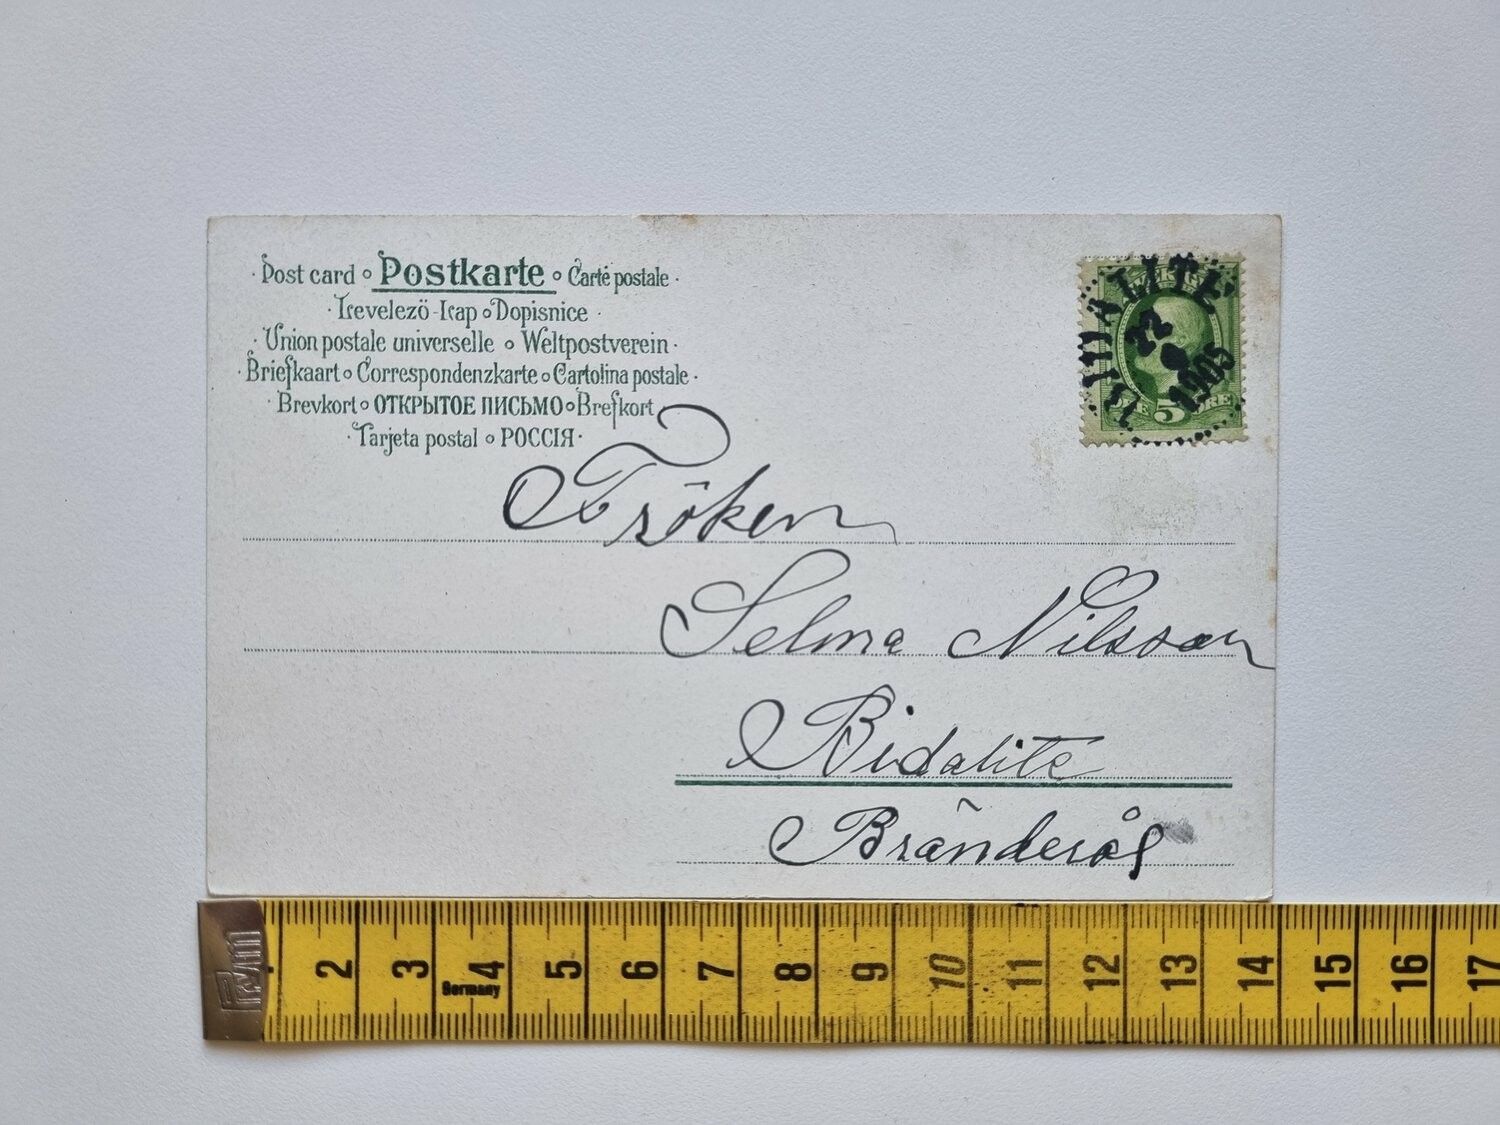 · Post card ∘ Postkarte ∘ Carte postale ·
· Levelezö-Lap ∘ Dopisnice ·
· Union postale universelle ∘ Weltpostverein ·
· Briefkaart ∘ Correspondenzkarte ∘ Cartolina postale ·
· Brevkort ∘ ОТКРЫТОЕ ПИСЬМО ∘ Brefkort
· Tarjeta postal ∘ РОССІЯ ·
22
1905
5 ÖRE
Fröken
Selma Nilsson
Bidalite
Bränderål
2 3 4 5 6 7 8 9 10 11 12 13 14 15 16 17
Germany